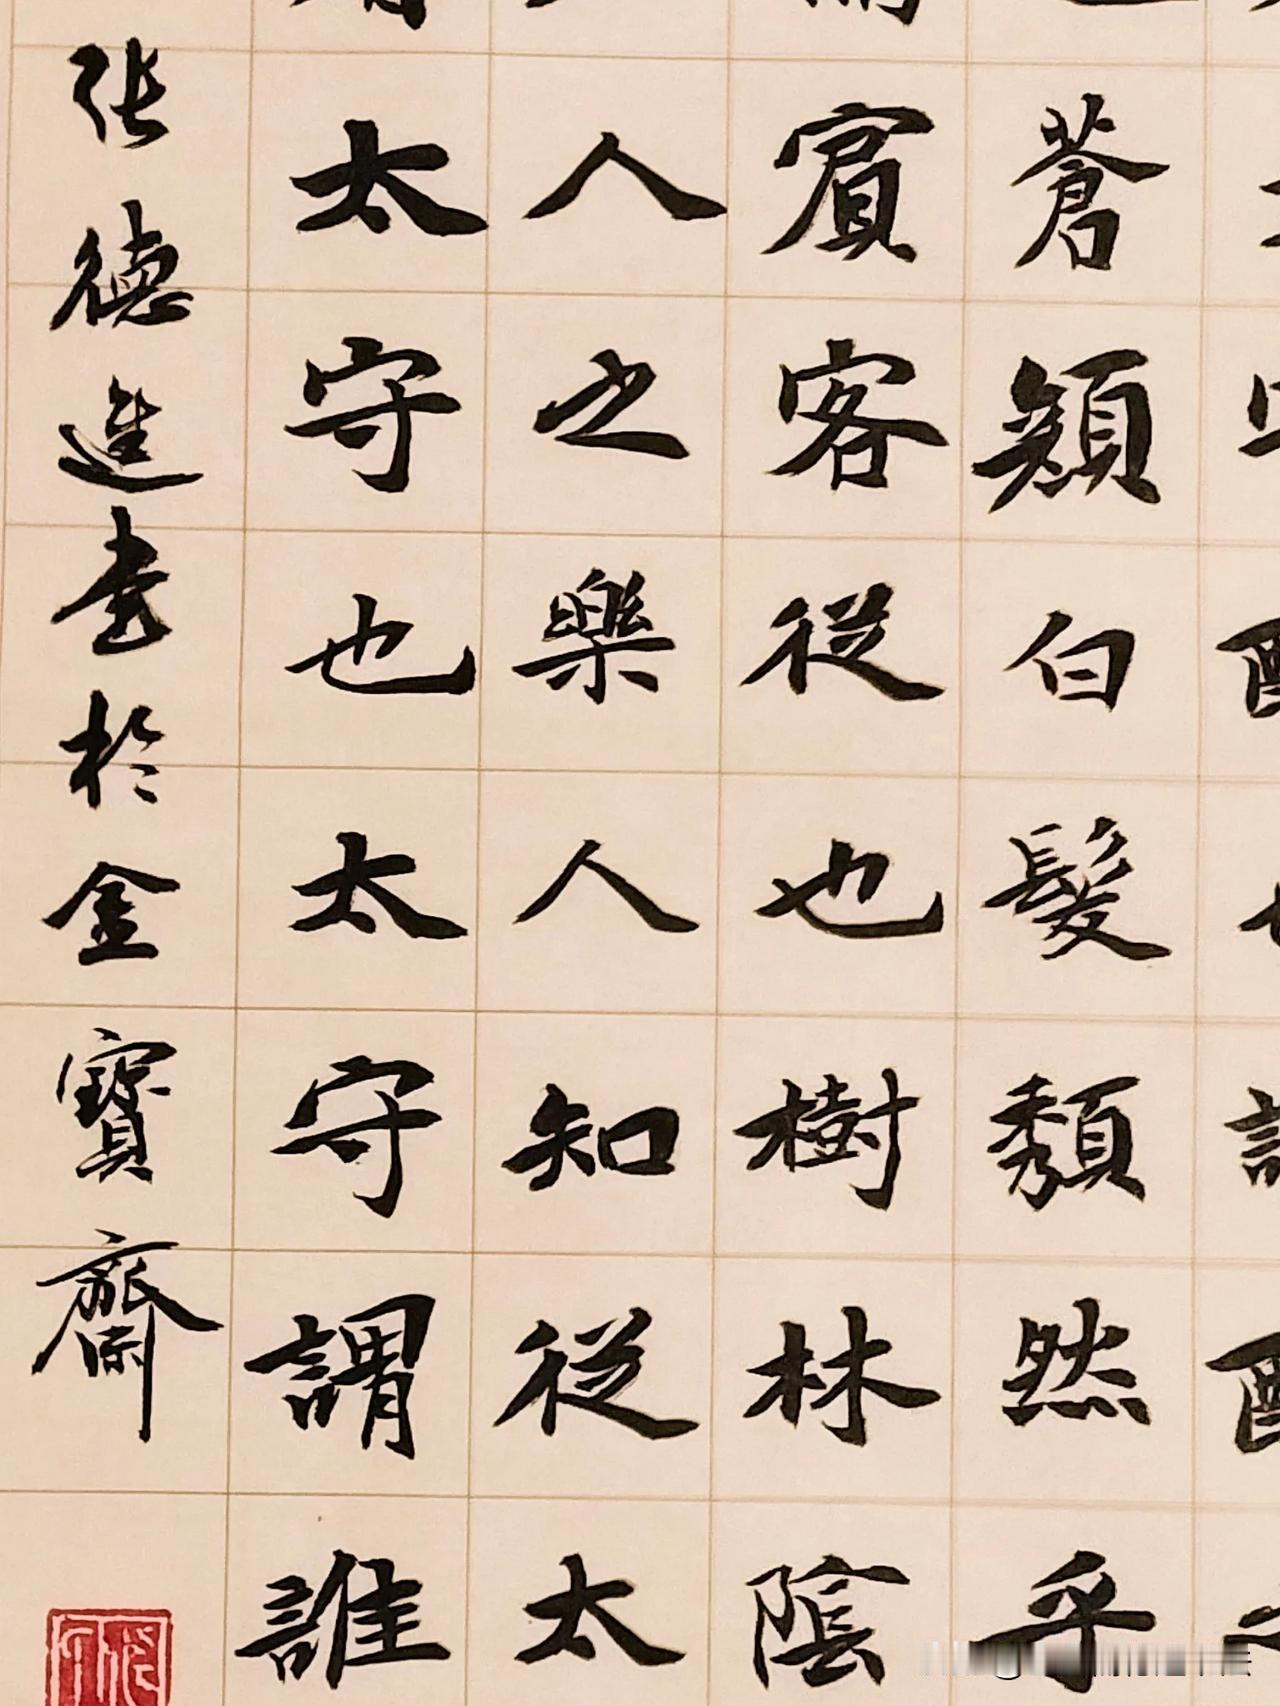 蒼顏白髮頹然乎
賓客從也樹林陰
人之樂人知從太
太守也太守謂誰
张德進书於金寶齋